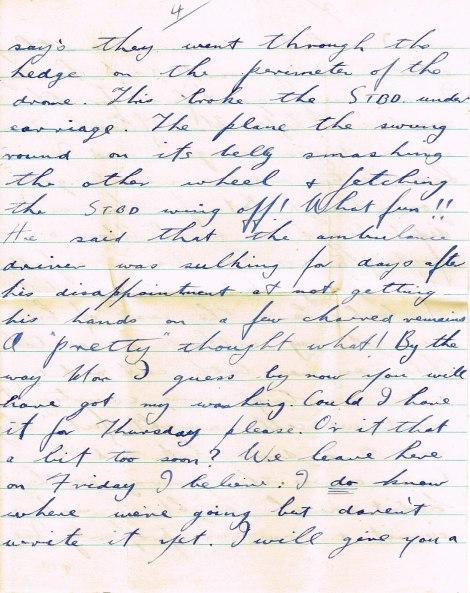 4
says they went through the
hedge on the perimeter of the
drome. This broke the STBD. under
carriage. The plane the swung
round on its belly smashing
the other wheel & fetching
the STBD wing off! What fun!!
He said that the ambulance
driver was sulking for days after
his disappointment at not getting
his hands on a few charred remains
A "pretty" thought what! By the
way Mon I guess by now you will
have got my washing. Could I have
it for Thursday please. Or it that
a bit too soon? We leave here
on Friday I believe: I do know
where we're going but daren't
write it yet. I will give you a